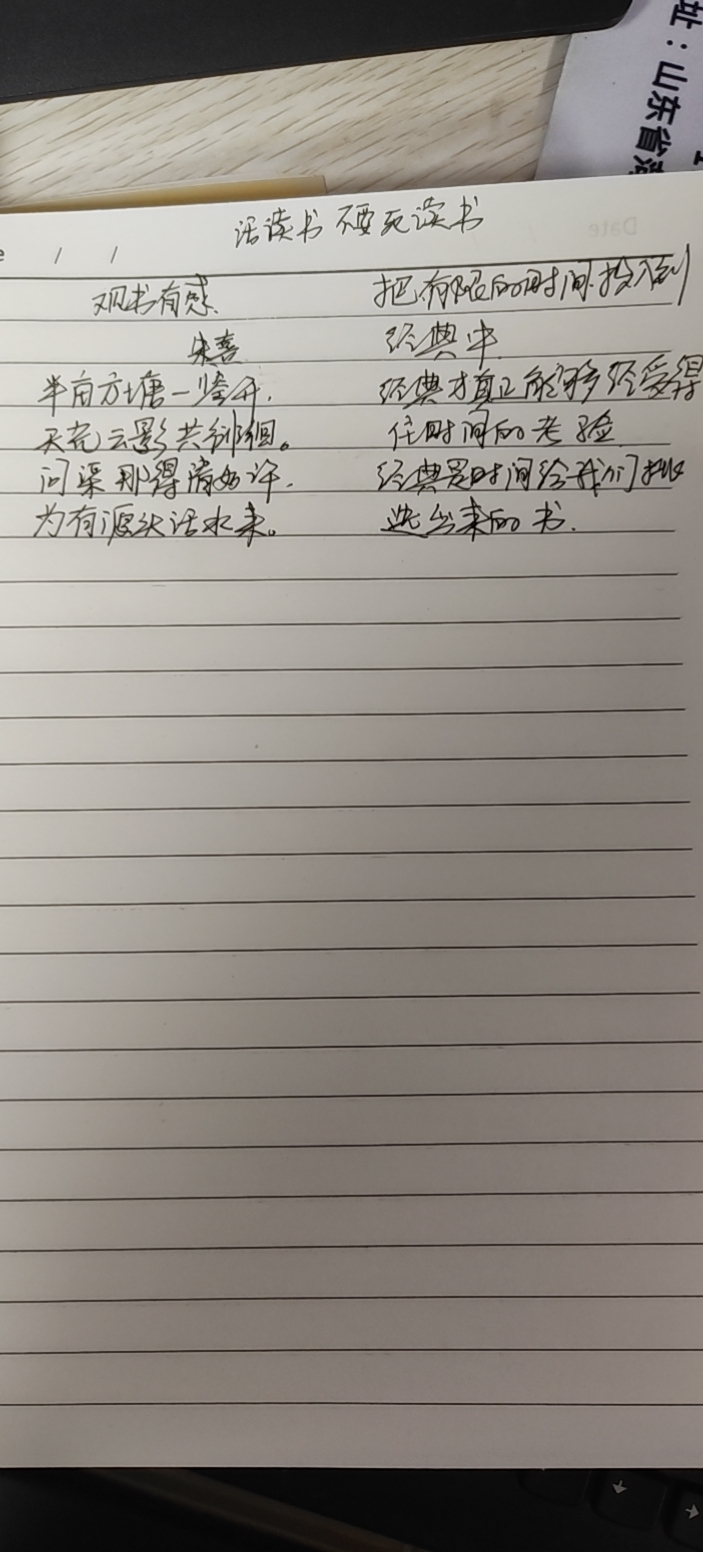 址：山东省
Date
活读书 不要死读书
/ /
观书有感
朱熹
半亩方塘一鉴开，
天光云影共徘徊。
问渠那得清如许，
为有源头活水来。
把有限的时间投入到
经典中
经典才真正能够经受得
住时间的考验
经典是时间给我们挑
选出来的书.